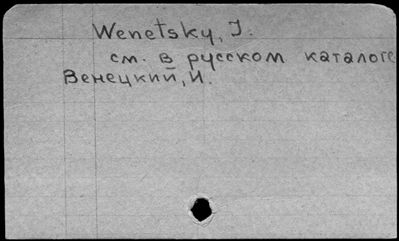 Wenetsky, J.
см. в русском каталоге
Венецкий, И.